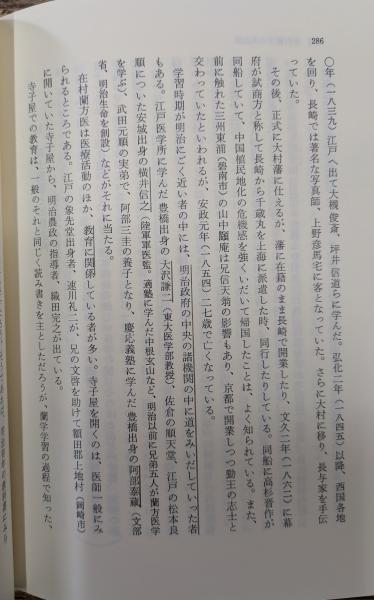 286
〇年（一八三九）江戸へ出て大槻俊斎、坪井信道らに学んだ。弘化二年（一八四五）以降、西国各地
を回り、長崎では著名な写真師、上野彦馬宅に客となっていた。さらに大村に移り、長与家を手伝
っていた。
その後、正式に大村藩に仕えるが、藩に在籍のまま長崎で開業したり、文久二年（一八六二）に幕
府が試商方と称して長崎から千歳丸を上海に派遣した時、同行したりしている。同船に高杉晋作が
同船していて、中国植民地化の危機感を強くいだいて帰国したことは、よく知られている。また、
前に触れた三州東浦（碧南市）の山中頤庵は兄信天翁の影響もあり、京都で開業しつつ勤王の志士と
交わっていたといわれるが、安政元年（一八五四）二七歳で亡くなっている。
学習時期が明治にごく近い者の中には、明治政府の中央の諸機関の中に道をみいだしていった者
もある。江戸医学所に学んだ豊橋出身の大沢謙二（東大医学部教授）、佐倉の順天堂、江戸の松本良
順についた安城出身の横井信之（陸軍軍医監。適塾に学んだ中根玄山など、明治以前に兄弟五人が蘭方医学
を学ぶ）、武田元順の実弟で、阿部三圭の養子となり、慶応義塾に学んだ豊橋出身の阿部泰蔵（文部
省、明治生命を創設）などがそれに当たる。
在村蘭方医は医療活動のほか、教育に関係している者が多い。寺子屋を開くのは、医師一般にみ
られるところである。江戸の象先堂出身者、速川礼二が、兄の文啓を助けて額田郡上地村（岡崎市）
に開いていた寺子屋から、明治農政の指導者、織田完之が出ている。
寺子屋での教育は、一般のそれと同じく読み書きを主としただろうが、蘭学学習の過程で知った、